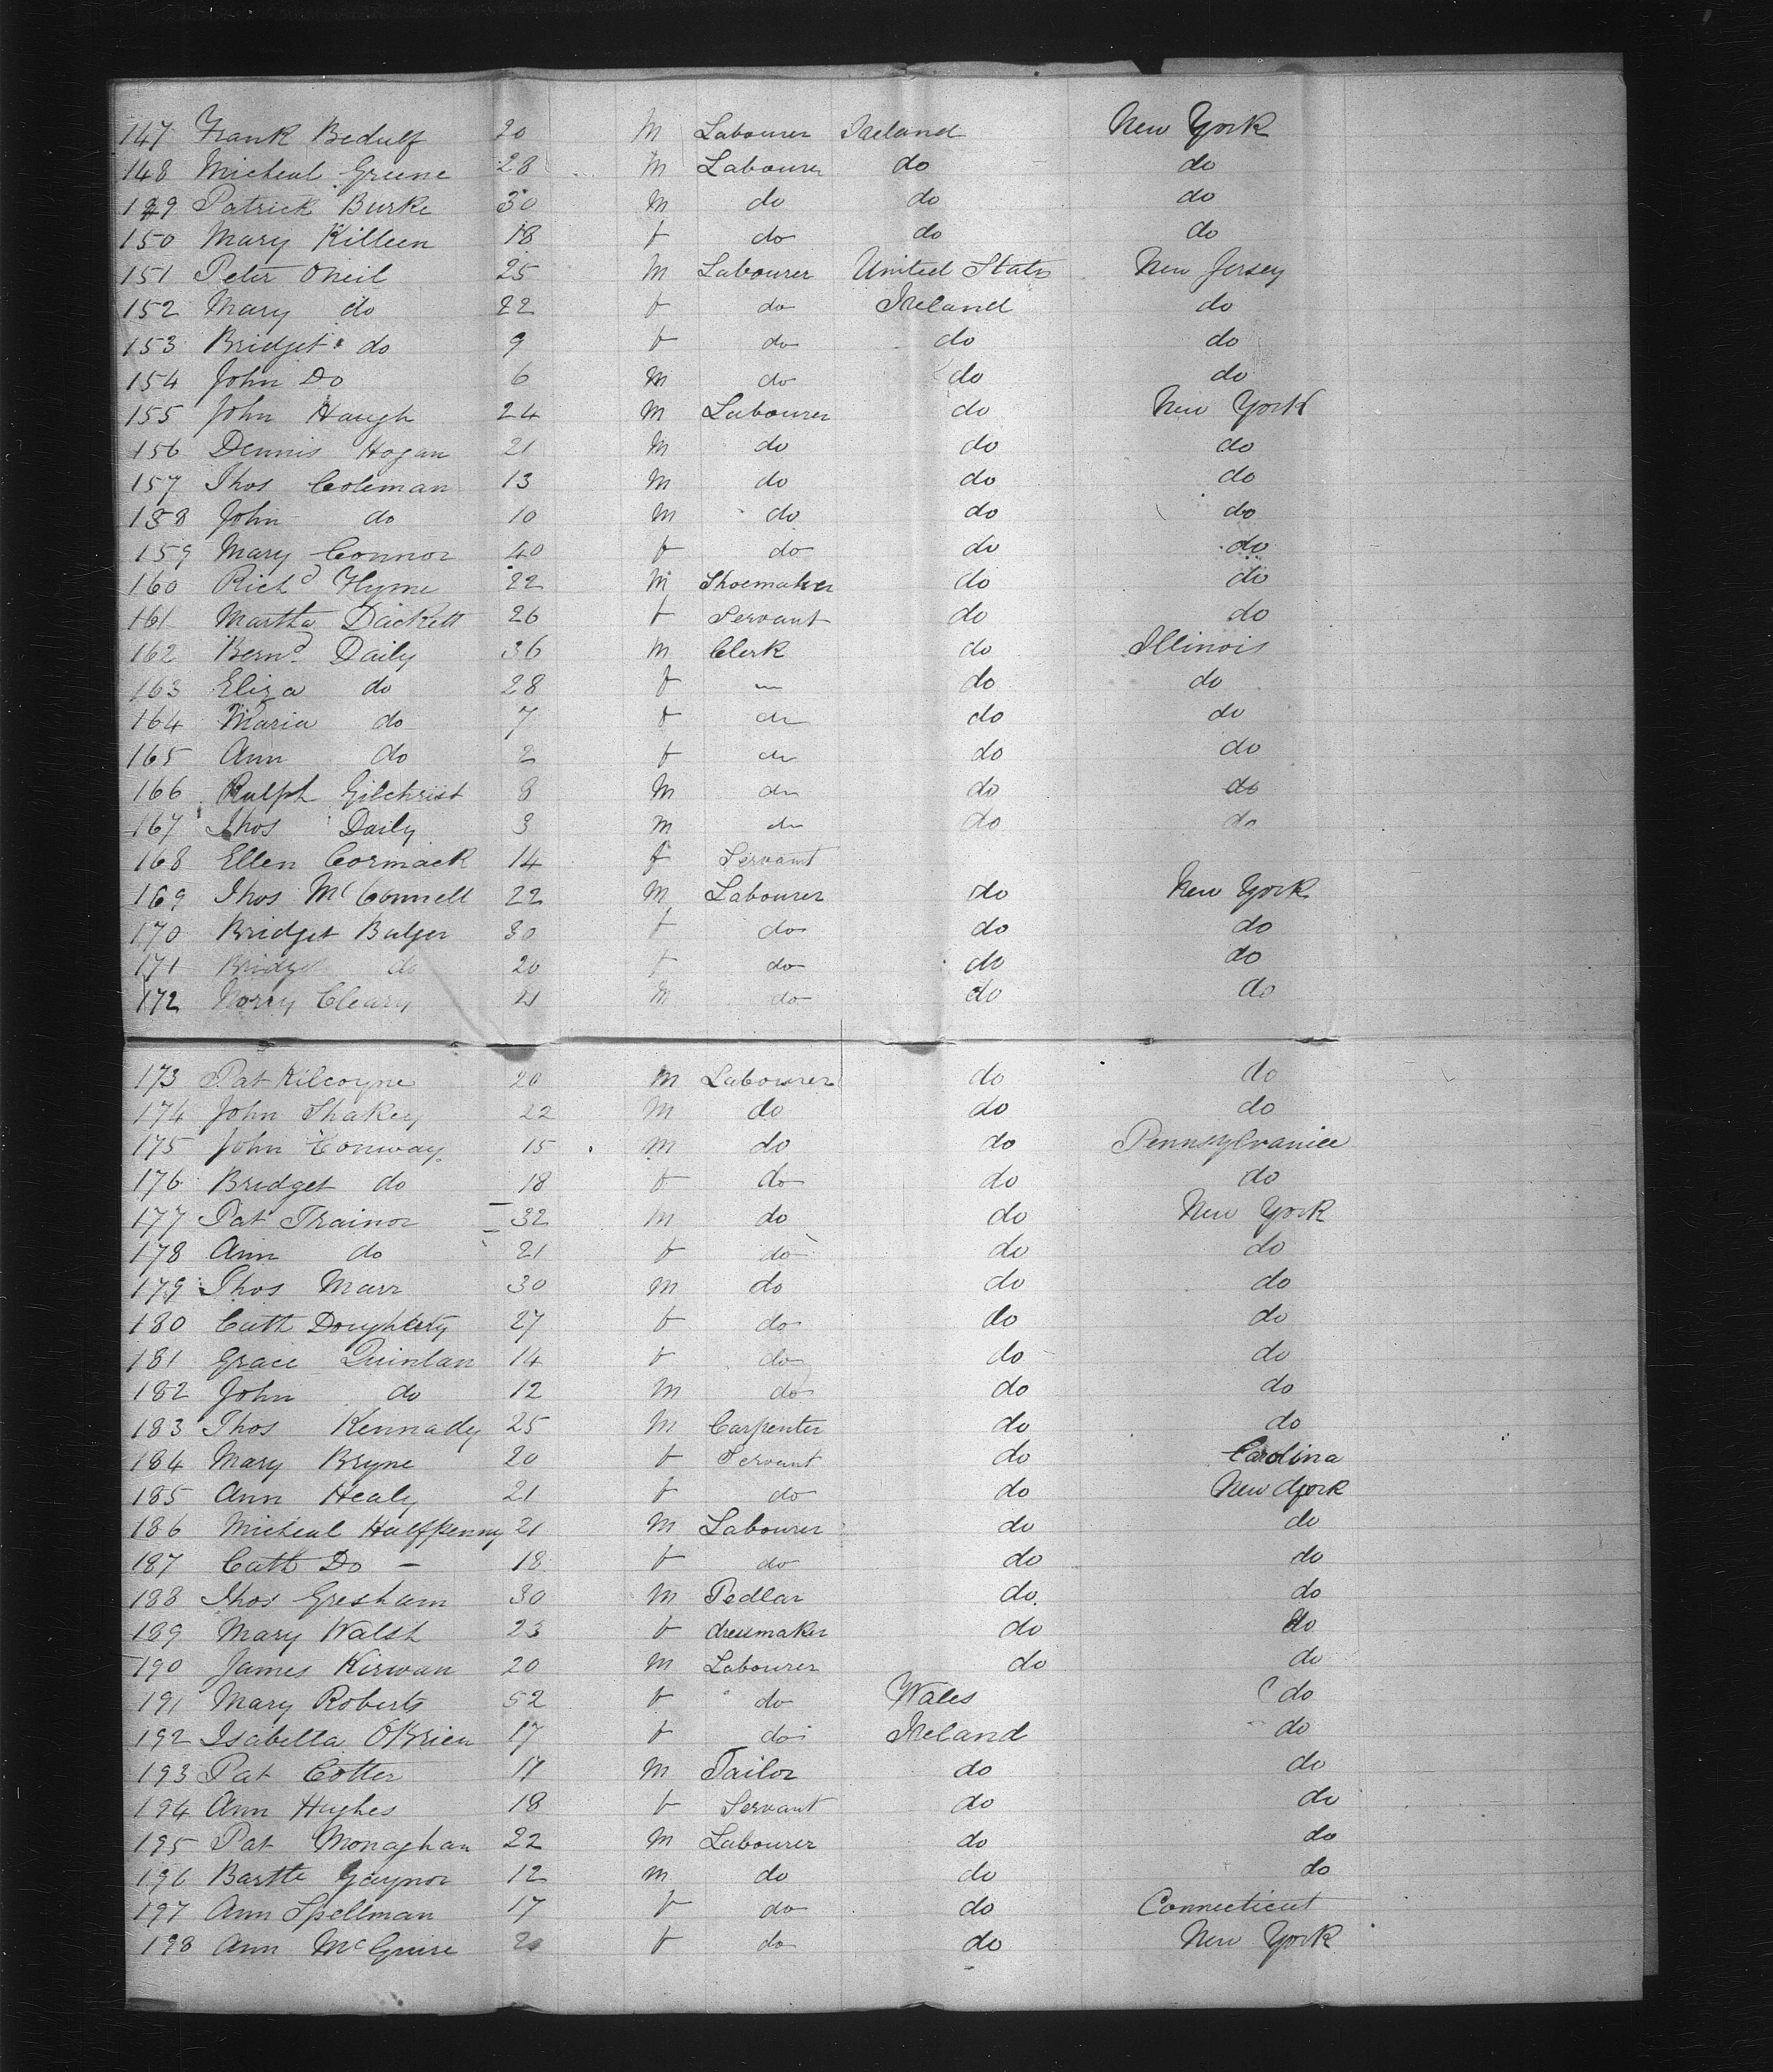 147 Frank Bedulf 20 M Labourer Ireland New York
148 Micheal Greene 28 M Labourer do do
149 Patrick Burke 30 M do do do
150 Mary Killeen 18 f do do do
151 Peter ONeil 25 M Labourer United States New Jersey
152 Mary do 22 f do Ireland do
153 Bridget do 9 f do do do
154 John Do 6 M do do do
155 John Haugh 24 M Labourer do New York
156 Dennis Hogan 21 M do do do
157 Thos Coleman 13 M do do do
158 John do 10 M do do do
159 Mary Connor 40 f do do do
160 Richd Hyme 22 M Shoemaker do do
161 Martha Dackett 26 f Servant do do
162 Bernd Daily 36 M Clerk do Illinois
163 Eliza do 28 f do do
164 Maria do 7 f do do do
165 Ann do 2 f do do do
166 Ralph Gilchrist 8 M do do do
167 Thos Daily 3 M do do do
168 Ellen Cormack 14 f Servant
169 Thos McConnell 22 M Labourer do New York
170 Bridget Bulger 30 f do do do
171 Bridget do 20 f do do do
172 Norry Cleary 21 M do do do
173 Pat Kilcoyne 20 M Labourer do do
174 John Shakey 22 M do do do
175 John Conway 15 M do do Pennsylvania
176 Bridget do 18 f do do do
177 Pat Trainor 32 M do do New York
178 Ann do 21 f do do do
179 Thos Marr 30 M do do do
180 Cath Dougherty 27 f do do do
181 Grace Quinlan 14 f do do do
182 John do 12 M do do do
183 Thos Kennady 25 M Carpenter do do
184 Mary Bryne 20 f Servant do Carolina
185 Ann Healy 21 f do do New York
186 Micheal Halfpenny 21 M Labourer do do
187 Cath Do – 18 f do do do
188 Thos Gresham 30 M Pedlar do do
189 Mary Walsh 23 f dressmaker do do
190 James Kirwan 20 M Labourer do do
191 Mary Roberts 52 f do Wales do
192 Isabella OBrien 17 f do Ireland do
193 Pat Cotter 17 M Tailor do do
194 Ann Hughes 18 f Servant do do
195 Pat Monaghan 22 M Labourer do do
196 Bartle Gaynor 12 M do do do
197 Ann Spellman 17 f do do Connecticut
198 Ann McGuire f do do New York